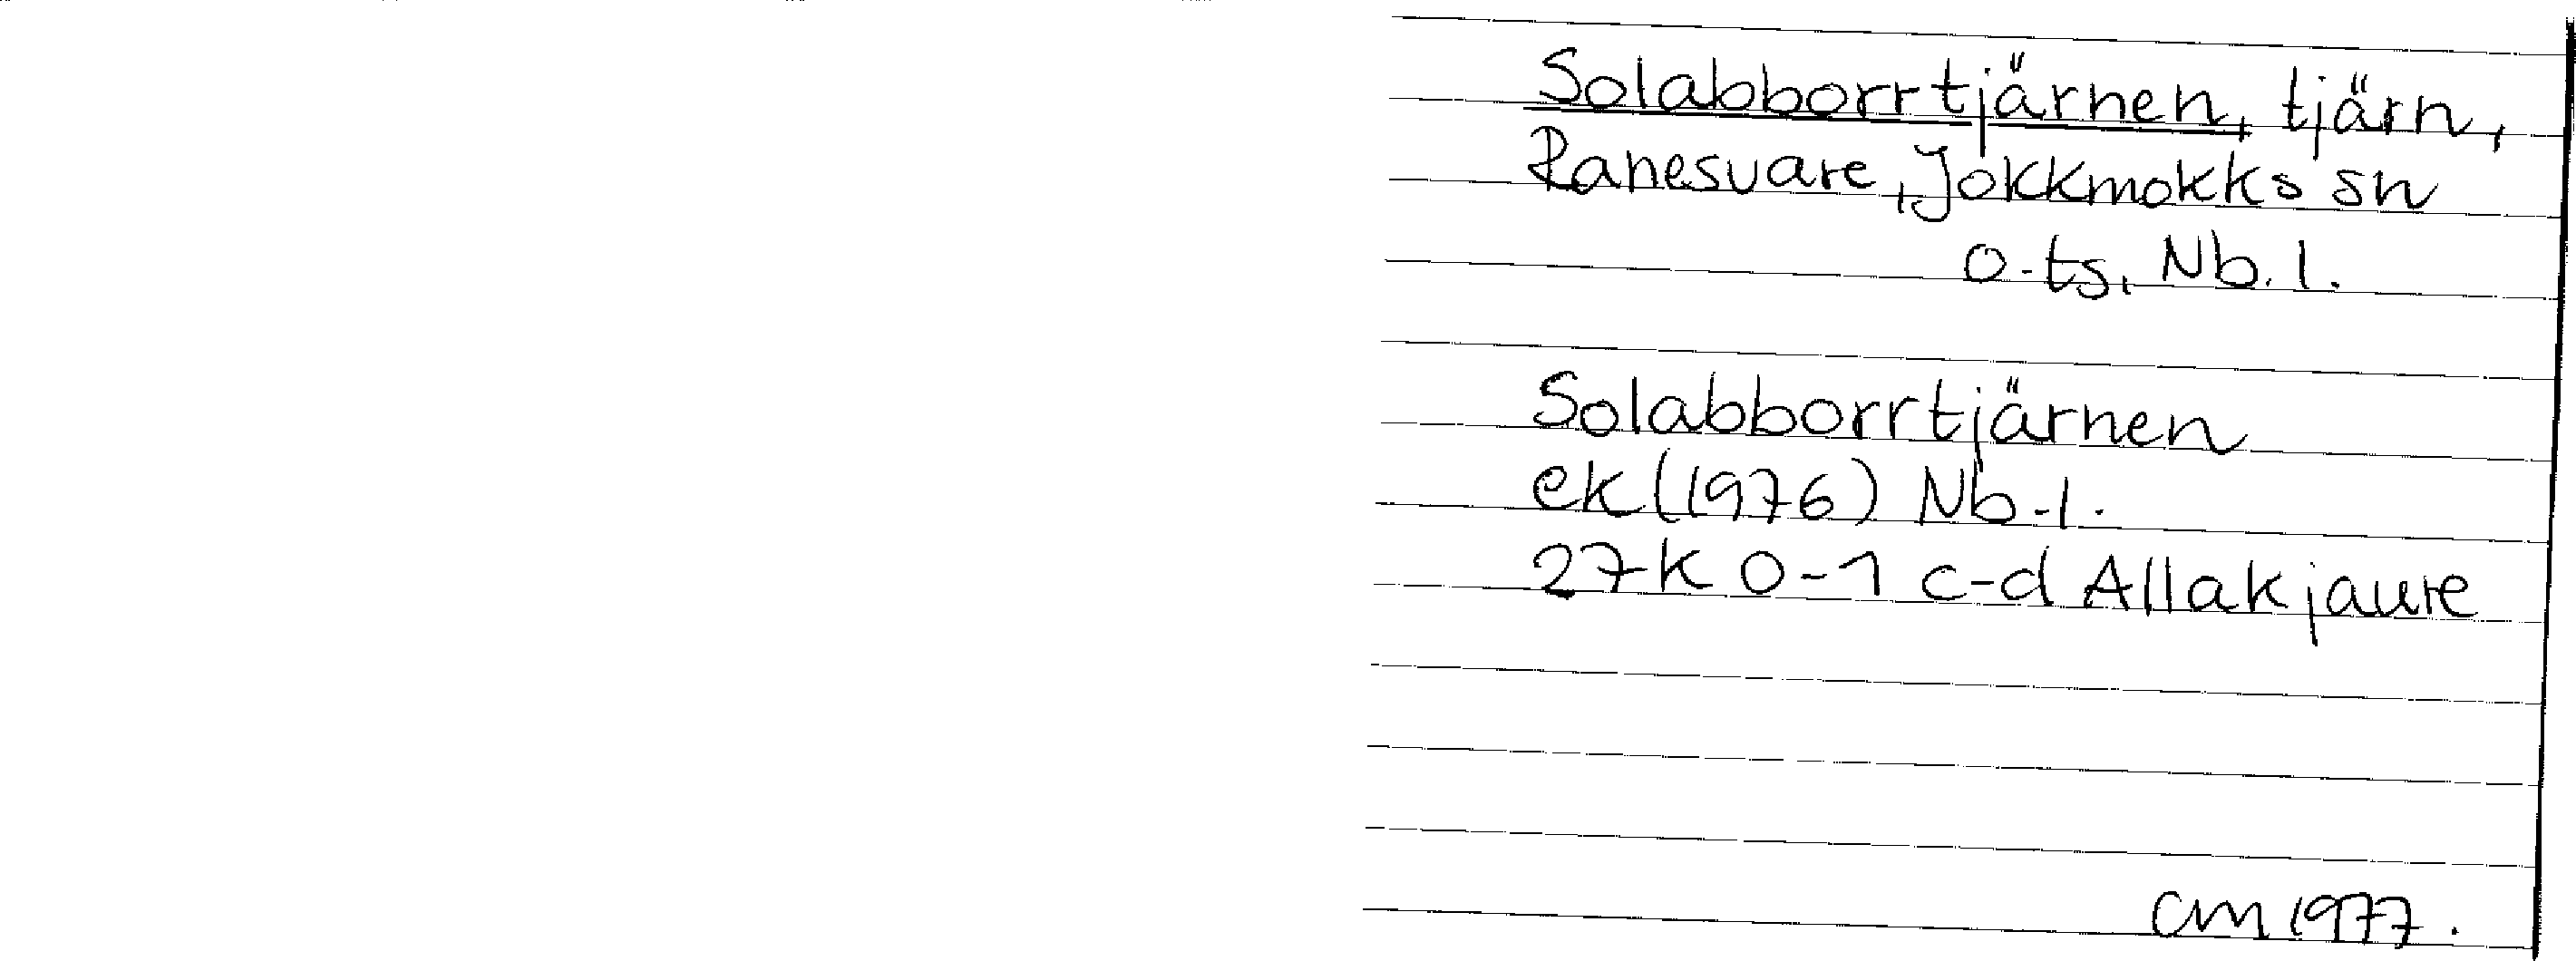 Solabborrtjärnen, tjärn,
Ranesvare, Jokkmokks sn
o. ts, Nb. l.
Solabborrtjärnen
ek (1976) Nb. l.
27K 0-1 c-d Allakjaure
CM 1977.